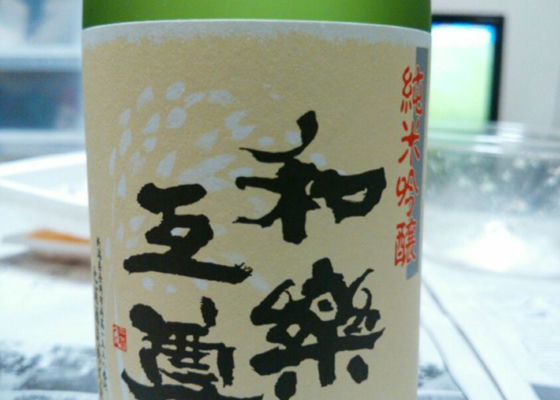 純米吟醸
和樂
互尊